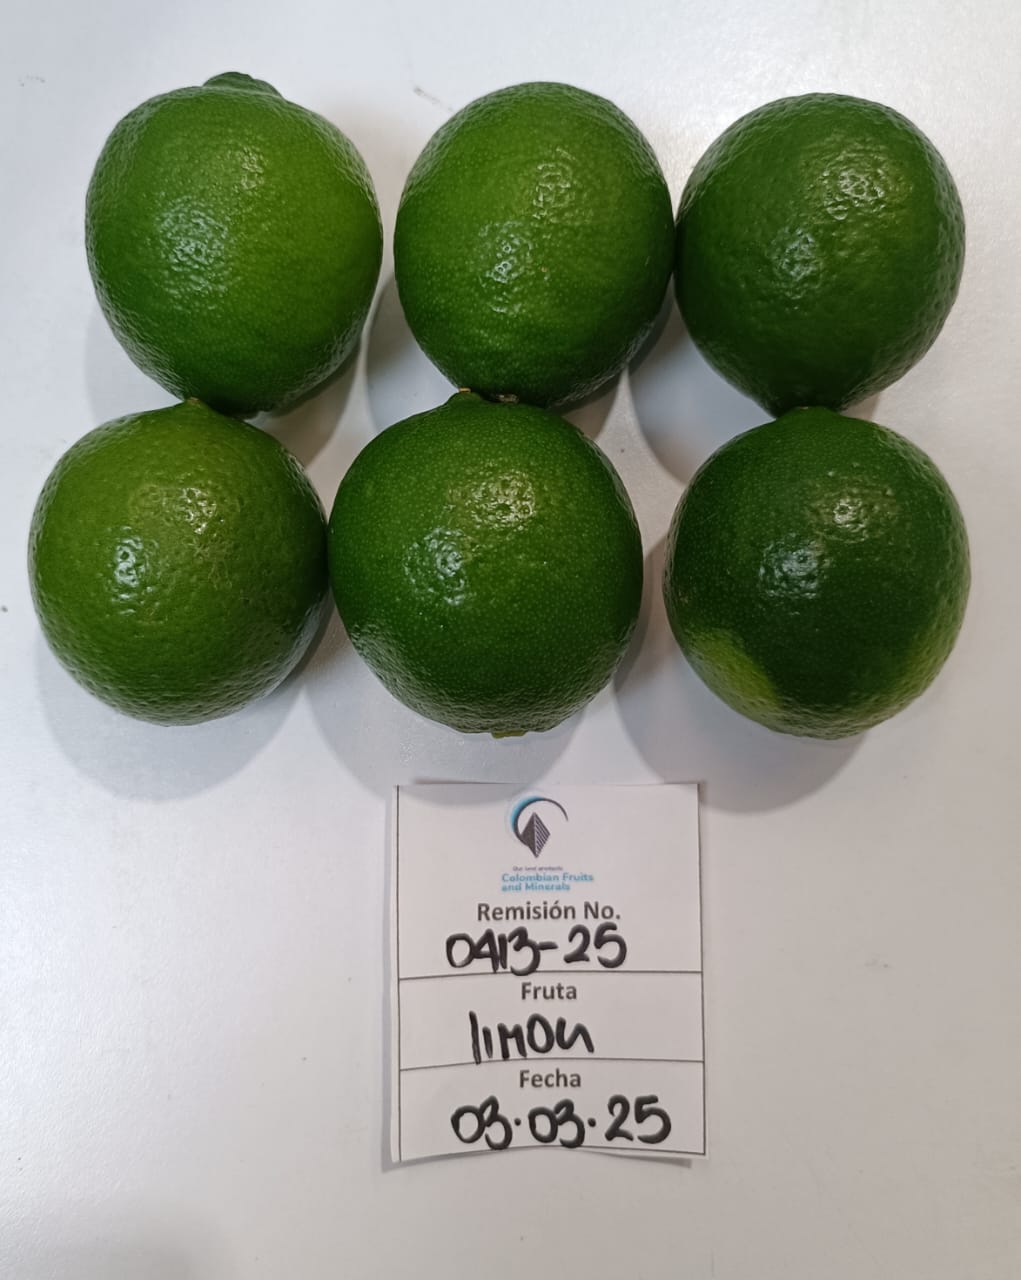 Our land products
Colombian Fruits
and Minerals
Remisión No.
0413-25
Fruta
limon
Fecha
03.03.25